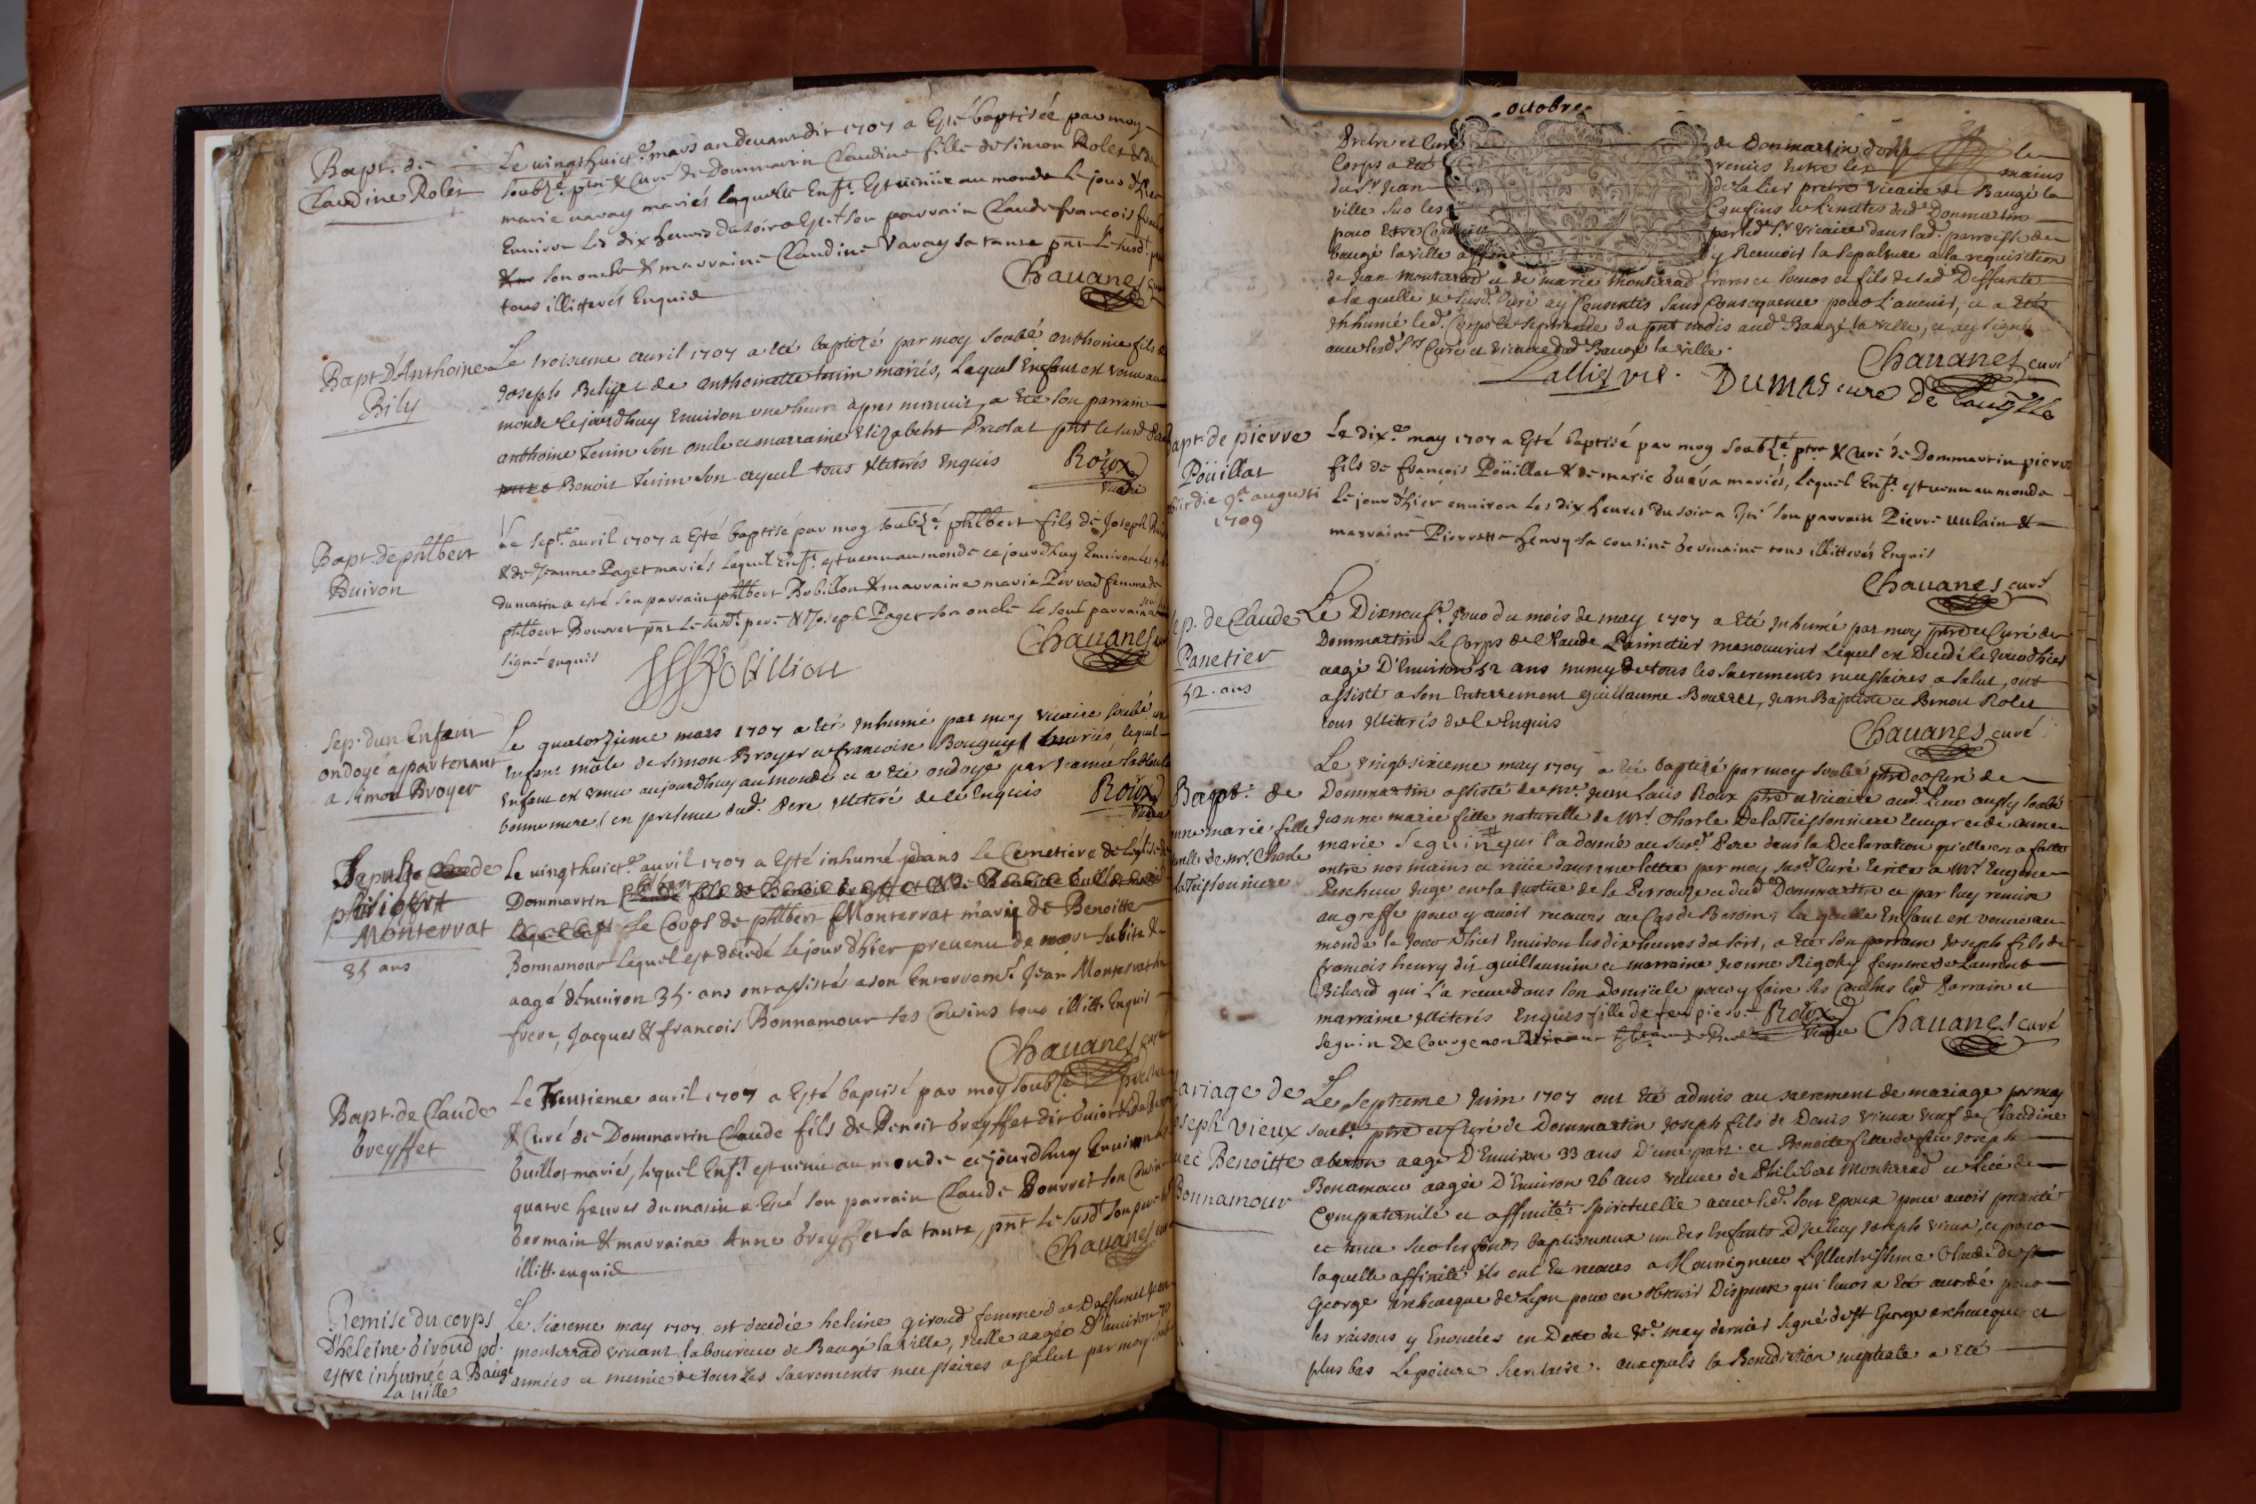 Bapt. de
Claudine Rolet
Le vingthuict.e mars an devant dit 1707 a Esté baptisée par moy
soubz.é ptre & Curé de Dommartin Claudine fille de Simon Rolet & de
marie varay mariés laquelle Enf.t Est venüe au monde le jour d'hier
Environ les dix heures du soir a Esté son parrain Claude francois
son oncle & marraine Claudine Varay sa tante pnt le susd.t
tous illitterés Enquis
Chavanes curé
Bapt D'Anthoine
Bily
Le troisieme avril 1707 a été baptizé par moy soubé anthoine fils de
Joseph Bily et de anthoinette Tenin mariés, Lequel Enfant est venu au
monde le jourdhuy Environ une heure apres minuit, a été son parrain
anthoine Tenin son oncle et marraine Elizabeht Prelat pnt le susd
Benoit Tenin son ayeul tous illiterés Enquis
Roux
vicaire
Bapt. de philbert
Buiron
Le sept.e avril 1707 a Esté baptisé par moy soubz.é philbert fils de Joseph
& de Jeanne Paget mariés Lequel Enf.t est venu au monde ce jourdhuy Environ les
du matin a esté son parrain philbert Robillon & marraine marie Perrad femme de
philbert Bouvret pnt le susd.t pere & Joseph Paget son oncle le seul parrain a
signé enquis
Chavanes
Robillion
Sep. dun Enfant
ondoyé appartenant
a simon Broyer
Le quatorzieme mars 1707 a été Inhumé par moy vicaire soubé un
Enfant mâle de Simon Broyer et francoise Bouquet mariés lequel
Enfant est venu aujourdhuy au monde et a été ondoyé par
bonne mere / en presence dud. Pere illiteré de le Enquis
Roux
vicaire
Sepult.
philibert
Monterrat
35 ans
Le vingthuict.e avril 1707 a Esté inhumé dans Le Cemetiere de l'église de
Dommartin
Le Corps de philbert Monterrat mari de Benoitte
Bonnamour Lequel est décédé le jour d'hier prevenu de mort subite &
aagé d'Environ 35. ans ont assistés a son Enterrem.t Jean Monterrat son
frere, Jacques & francois Bonnamour ses Cousins tous illitt. Enquis
Chavanes curé
Bapt. de Claude
breyffet
Le Trentieme avril 1707 a Esté baptisé par moy soubz.é prestre
& Curé de Dommartin Claude fils de Benoit breyffet dit &
buillot mariés, lequel Enf.t est venu au monde ce jourdhuy Environ les
quatre heures du matin a Esté son parrain Claude Bouvret son Cousin
Germain & marraine Anne breyffet sa tante, pnt le susd.t son pere
illitt. enquis
Chavanes curé
Remise du corps
D'heleine Giroud pd.
estre inhumée a Baugé
La ville
Le sixieme may 1707 est decedée heleine giroud femme de
monterrad vivant laboureur de Baugé la ville, icelle aagée D'environ 70
années et munie de tous Les sacrements necessaires a salut par moy
octobre
Prêtre et Curé de Dommartin
Corps a été remis entre les mains
du S.r Jean pretre vicaire de Baugé la
ville sur les Confins et Limittes dud. Dommartin
pour Etre par led. S.r vicaire dans lad. parroisse de
baugé la ville y Recevoir la sepulture a la requisition
de Jean monterrad et de marie Monterrad et fils de lad. Deffunte
a la quelle je susd. Curé ay Consentis sans Consequence pour L'avenir, et a été
Inhumé led. Corps le septieme du pnt mois aud. Baugé la ville, et ay signé
avec lesd. S.rs Curé et vicaire dud. Baugé la ville.
Chavanes curé
Dumas curé de
Bapt. de pierre
Poüillat
obiit die 9.a augusti
1709
Le dix.e may 1707 a Esté baptisé par moy soubz.é ptre & Curé de Dommartin pierre
fils de françois Poüillat & de marie mariés, Lequel Enf.t est venu au monde
Le jour d'hier environ les dix heures du soir a Esté son parrain Pierre &
marraine Pierrette Henry sa cousine Germaine tous illitterés Enquis
Chavanes curé
Sep. de Claude
Panetier
52. ans
Le Dixneuf.e Jour du mois de may 1707 a été Inhumé par moy ptre et Curé de
Dommartin Le Corps de Claude Panetier manouvrier Lequel est Decedé le jour d'hier
aagé D'Environ 52 ans muny de tous les sacrements necessaires a salut, ont
assisté a son Enterrement guillaume Bouvret, Jean Baptiste et Benoit Rolet
tous illiterés de le Enquis
Chavanes curé
Bapt. de
Jeanne marie fille
naturelle de Mr. Charle
la Teyssonniere
Le vingtsixieme may 1707 a été baptizé par moy soubé ptre et Curé de
Dommartin assisté de Mr. Jean Louis Roux ptre et vicaire aud. Lieu aussy soubé
Jeanne marie fille naturelle de Mr. Charle De la Teyssonniere Ecuyer et de anne
marie Seguin qui l'a donnée au susd. Pere dans la Declaration qu'elle en a faitte
entre nos mains et mise dans une lettre par moy susd. Curé Ecrite a Mr.
Juge en la Justice de la Perrouze et dud. Dommartin et par luy remise
au greffe pour y avoir recours au Cas de Besoin, La quelle Enfant est venue au
monde le jour d'hier Environ les dix heures du soir, a été son parrain Joseph fils de
francois henry dit guillaumin et marraine Jeanne Rigoley femme de Laurent
Bihoud qui l'a reçue dans son domicile pour y faire ses Couches led. Parrain et
marraine illiterés Enquis fille de feu pierre
Seguin De Courgenon
Roux
vicaire
Chavanes curé
Mariage de
Joseph vieux
avec Benoitte
Bonnamour
Le septieme Juin 1707 ont été admis au sacrement de mariage par moy
soubé. ptre et Curé de Dommartin Joseph fils de Denis vieux veuf de Claudine
aagé D'Environ 33 ans D'une part et Benoite fille de feu Joseph
Bonamour aagée D'Environ 26 ans veuve de Philibert Monterrad et Liée de
Compaternité et affinité spirituelle avec led. son Epoux pour avoir presenté
et tenu sur les fonts baptismaux un des Enfants D'Icelluy Joseph vieux, et pour
laquelle affinité ils ont Eu recours a Monseigneur L'illustrissime Claude de St
George Archeveque de Lyon pour en obtenir Dispense qui leur a été accordé pour
les raisons y Enoncées en Datte du may dernier signé de St George archeveque et
plus bas Lepoivre secretaire. auxquels la Benediction nuptiale a été